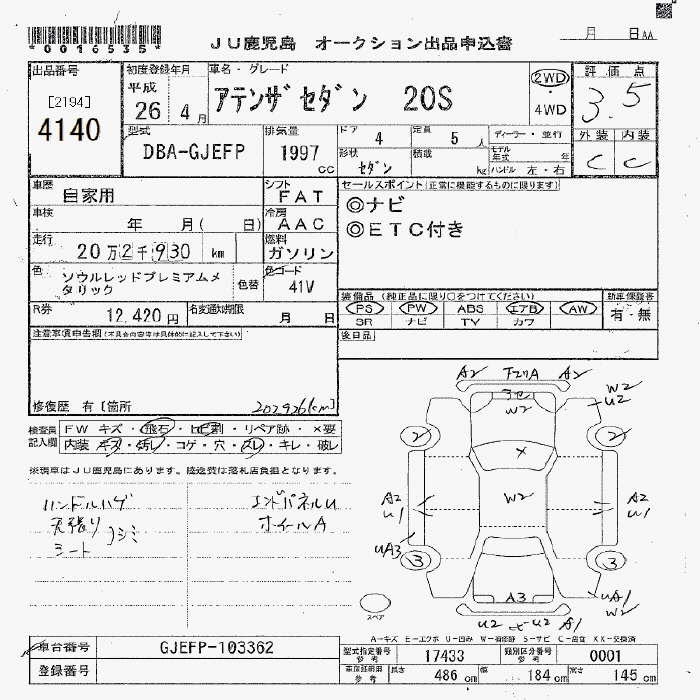 *0016535*
JU鹿児島 オークション出品申込書
月 日AA
出品番号
[2194]
4140
初度登録年月
平成
26年 4月
車名・グレード
アテンザセダン 20S
2WD
4WD
評価点
3.5
外装 内装
C C
型式
DBA-GJEFP
排気量
1997 cc
ドア 4
定員 5 人
ディーラー・並行
形状 セダン
積載 kg
モデル年式 年
ハンドル 左・右
車歴
自家用
シフト
FAT
セールスポイント(正常に機能するものに限ります)
◎ナビ
◎ETC付き
車検
年 月( 日)
冷房
AAC
走行
20万2千930 km
燃料
ガソリン
色
ソウルレッドプレミアムメタリック
色替
色コード
41V
R券
12,420円
名変通知期限
月 日
装備品(純正品に限り○をつけてください)
PS PW ABS エアB AW
SR ナビ TV カワ
新車保証書
有・無
注意事項申告欄(不具合内容は具体的に記入して下さい)
後日品
修復歴 有〔箇所
202926(km)
検査員記入欄
FW キズ・飛石・ヒビ割・リペア跡・×要
内装 キズ・汚れ・コゲ・穴・スレ・キレ・破レ
※現車はJU鹿児島にあります。陸送費は落札店負担となります。
ハンドルハゲ
天張り
シート
シミ
エンドパネルU
ホイールA
A2 下スリA A2
W2
W2
U2
2 2
×
W2
A2
U1
A2
U1
UA3
3 3
A3
UA1
W2
U2 U2 A1
スペア
A-キズ E-エクボ U-凹み W-補修跡 S-サビ C-腐食 XX-交換済
車台番号
GJEFP-103362
登録番号
型式指定番号
参考
17433
類別区分番号
参考
0001
車両詳細
参考
長さ 486 cm
幅 184 cm
高さ 145 cm